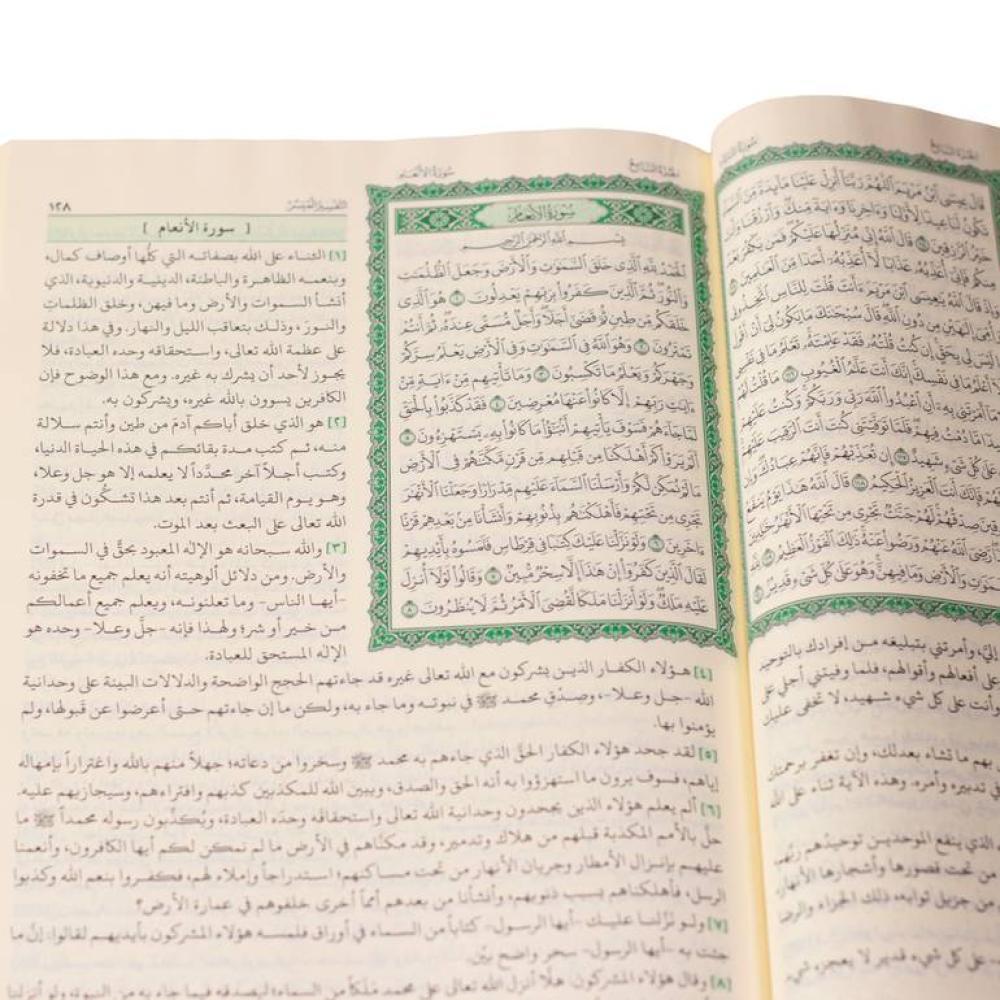 الجزء السابع
قَالَ عِيسَى ابْنُ مَرْيَمَ اللَّهُمَّ رَبَّنَا أَنزِلْ عَلَيْنَا مَائِدَةً مِّنَ السَّمَاءِ
تَكُونُ لَنَا عِيدًا لِّأَوَّلِنَا وَءَاخِرِنَا وَءَايَةً مِّنكَ وَارْزُقْنَا وَأَنتَ
خَيْرُ الرَّازِقِينَ ١١٤ قَالَ اللَّهُ إِنِّي مُنَزِّلُهَا عَلَيْكُمْ فَمَن يَكْفُرْ بَعْدُ
مِنكُمْ فَإِنِّي أُعَذِّبُهُ عَذَابًا لَّا أُعَذِّبُهُ أَحَدًا مِّنَ الْعَالَمِينَ ١١٥
وَإِذْ قَالَ اللَّهُ يَاعِيسَى ابْنَ مَرْيَمَ ءَأَنتَ قُلْتَ لِلنَّاسِ اتَّخِذُونِي
وَأُمِّيَ إِلَاهَيْنِ مِن دُونِ اللَّهِ قَالَ سُبْحَانَكَ مَا يَكُونُ لِي أَنْ أَقُولَ
مَا لَيْسَ لِي بِحَقٍّ إِن كُنتُ قُلْتُهُ فَقَدْ عَلِمْتَهُ تَعْلَمُ مَا فِي نَفْسِي
وَلَا أَعْلَمُ مَا فِي نَفْسِكَ إِنَّكَ أَنتَ عَلَّامُ الْغُيُوبِ ١١٦ مَا قُلْتُ لَهُمْ
إِلَّا مَا أَمَرْتَنِي بِهِ أَنِ اعْبُدُوا اللَّهَ رَبِّي وَرَبَّكُمْ وَكُنتُ عَلَيْهِمْ
شَهِيدًا مَّا دُمْتُ فِيهِمْ فَلَمَّا تَوَفَّيْتَنِي كُنتَ أَنتَ الرَّقِيبَ عَلَيْهِمْ
وَأَنتَ عَلَى كُلِّ شَيْءٍ شَهِيدٌ ١١٧ إِن تُعَذِّبْهُمْ فَإِنَّهُمْ عِبَادُكَ وَإِن
تَغْفِرْ لَهُمْ فَإِنَّكَ أَنتَ الْعَزِيزُ الْحَكِيمُ ١١٨ قَالَ اللَّهُ هَذَا يَوْمُ يَنفَعُ
الصَّادِقِينَ صِدْقُهُمْ لَهُمْ جَنَّاتٌ تَجْرِي مِن تَحْتِهَا الْأَنْهَارُ خَالِدِينَ
فِيهَا أَبَدًا رَّضِيَ اللَّهُ عَنْهُمْ وَرَضُوا عَنْهُ ذَلِكَ الْفَوْزُ الْعَظِيمُ ١١٩
السَّمَاوَاتِ وَالْأَرْضِ وَمَا فِيهِنَّ وَهُوَ عَلَى كُلِّ شَيْءٍ قَدِيرٌ ١٢٠
إليَّ، وأمرتني بتبليغه من إفرادك بالتوحيد
على أفعالهم وأقوالهم، فلما وفيتني أجلي على
وأنت على كل شيء شهيد، لا تخفى عليك
بهم ما تشاء بعدلك، وإن تغفر برحمتك
في تدبيره وأمره. وهذه الآية ثناء على الله
الذي ينفع الموحدين توحيدُهم ربَّهم
من تحت قصورها وأشجارها الأنهار،
من جزيل ثوابه، ذلك الجزاء والرضا
على كل شيء قدير لا يعجزه شيء
الجزء السابع
سورة الأنعام
التفسير الميسر
١٢٨
سُورَةُ الأَنْعَامِ
بِسْمِ اللَّهِ الرَّحْمَنِ الرَّحِيمِ
الْحَمْدُ لِلَّهِ الَّذِي خَلَقَ السَّمَاوَاتِ وَالْأَرْضَ وَجَعَلَ الظُّلُمَاتِ
وَالنُّورَ ثُمَّ الَّذِينَ كَفَرُوا بِرَبِّهِمْ يَعْدِلُونَ ١ هُوَ الَّذِي
خَلَقَكُم مِّن طِينٍ ثُمَّ قَضَى أَجَلًا وَأَجَلٌ مُّسَمًّى عِندَهُ ثُمَّ أَنتُمْ
تَمْتَرُونَ ٢ وَهُوَ اللَّهُ فِي السَّمَاوَاتِ وَفِي الْأَرْضِ يَعْلَمُ سِرَّكُمْ
وَجَهْرَكُمْ وَيَعْلَمُ مَا تَكْسِبُونَ ٣ وَمَا تَأْتِيهِم مِّنْ ءَايَةٍ مِّنْ
ءَايَاتِ رَبِّهِمْ إِلَّا كَانُوا عَنْهَا مُعْرِضِينَ ٤ فَقَدْ كَذَّبُوا بِالْحَقِّ
لَمَّا جَاءَهُمْ فَسَوْفَ يَأْتِيهِمْ أَنبَاءُ مَا كَانُوا بِهِ يَسْتَهْزِءُونَ ٥
أَلَمْ يَرَوْا كَمْ أَهْلَكْنَا مِن قَبْلِهِم مِّن قَرْنٍ مَّكَّنَّاهُمْ فِي الْأَرْضِ
مَا لَمْ نُمَكِّن لَّكُمْ وَأَرْسَلْنَا السَّمَاءَ عَلَيْهِم مِّدْرَارًا وَجَعَلْنَا الْأَنْهَارَ
تَجْرِي مِن تَحْتِهِمْ فَأَهْلَكْنَاهُم بِذُنُوبِهِمْ وَأَنشَأْنَا مِن بَعْدِهِمْ قَرْنًا
ءَاخَرِينَ ٦ وَلَوْ نَزَّلْنَا عَلَيْكَ كِتَابًا فِي قِرْطَاسٍ فَلَمَسُوهُ بِأَيْدِيهِمْ
لَقَالَ الَّذِينَ كَفَرُوا إِنْ هَذَا إِلَّا سِحْرٌ مُّبِينٌ ٧ وَقَالُوا لَوْلَا أُنزِلَ
عَلَيْهِ مَلَكٌ وَلَوْ أَنزَلْنَا مَلَكًا لَّقُضِيَ الْأَمْرُ ثُمَّ لَا يُنظَرُونَ ٨
[ سورة الأنعام ]
[١] الثناء على الله بصفاته التي كلُّها أوصاف كمال،
وبنعمه الظاهرة والباطنة، الدينية والدنيوية، الذي
أنشأ السموات والأرض وما فيهن، وخلق الظلمات
والنور، وذلك بتعاقب الليل والنهار. وفي هذا دلالة
على عظمة الله تعالى، واستحقاقه وحده العبادة، فلا
يجوز لأحد أن يشرك به غيره. ومع هذا الوضوح فإن
الكافرين يسوون بالله غيره، ويشركون به.
[٢] هو الذي خلق أباكم آدم من طين وأنتم سلالة
منه، ثم كتب مدة بقائكم في هذه الحياة الدنيا،
وكتب أجلاً آخر محدَّداً لا يعلمه إلا هو جل وعلا،
وهو يوم القيامة، ثم أنتم بعد هذا تشكُّون في قدرة
الله تعالى على البعث بعد الموت.
[٣] والله سبحانه هو الإله المعبود بحقٍّ في السموات
والأرض. ومن دلائل ألوهيته أنه يعلم جميع ما تخفونه
-أيها الناس- وما تعلنونه، ويعلم جميع أعمالكم
من خير أو شر؛ ولهذا فإنه -جلَّ وعلا- وحده هو
الإله المستحق للعبادة.
[٤] هؤلاء الكفار الذين يشركون مع الله تعالى غيره قد جاءتهم الحجج الواضحة والدلالات البينة على وحدانية
الله -جل وعلا-، وصِدْقِ محمد ﷺ في نبوته وما جاء به، ولكن ما إن جاءتهم حتى أعرضوا عن قَبولها، ولم
يؤمنوا بها.
[٥] لقد جحد هؤلاء الكفار الحقَّ الذي جاءهم به محمد ﷺ وسخروا من دعائه؛ جهلاً منهم بالله واغتراراً بإمهاله
إياهم، فسوف يرون ما استهزؤوا به أنه الحق والصدق، ويبين الله للمكذبين كذبهم وافتراءهم، وسيجازيهم عليه.
[٦] ألم يعلم هؤلاء الذين يجحدون وحدانية الله تعالى واستحقاقه وحده العبادة، ويُكذِّبون رسوله محمداً ﷺ ما
حلَّ بالأمم المكذبة قبلهم من هلاك وتدمير، وقد مكنَّاهم في الأرض ما لم نمكن لكم أيها الكافرون، وأنعمنا
عليهم بإنزال الأمطار وجريان الأنهار من تحت مساكنهم؛ استدراجاً وإملاء لهم، فكفروا بنعم الله وكذبوا
الرسل، فأهلكناهم بسبب ذنوبهم، وأنشأنا من بعدهم أمماً أخرى خلفوهم في عمارة الأرض؟
[٧] ولو نزَّلنا عليك -أيها الرسول- كتاباً من السماء في أوراق فلمسه هؤلاء المشركون بأيديهم لقالوا: إنَّ ما
جئت به -أيها الرسول- سحر واضح بيِّن.
[٨] وقال هؤلاء المشركون: هلَّا أنزل الله تعالى على محمد مَلَكاً من السماء؛ ليصدقه فيما جاء به من النبوة، ولو أنزلنا